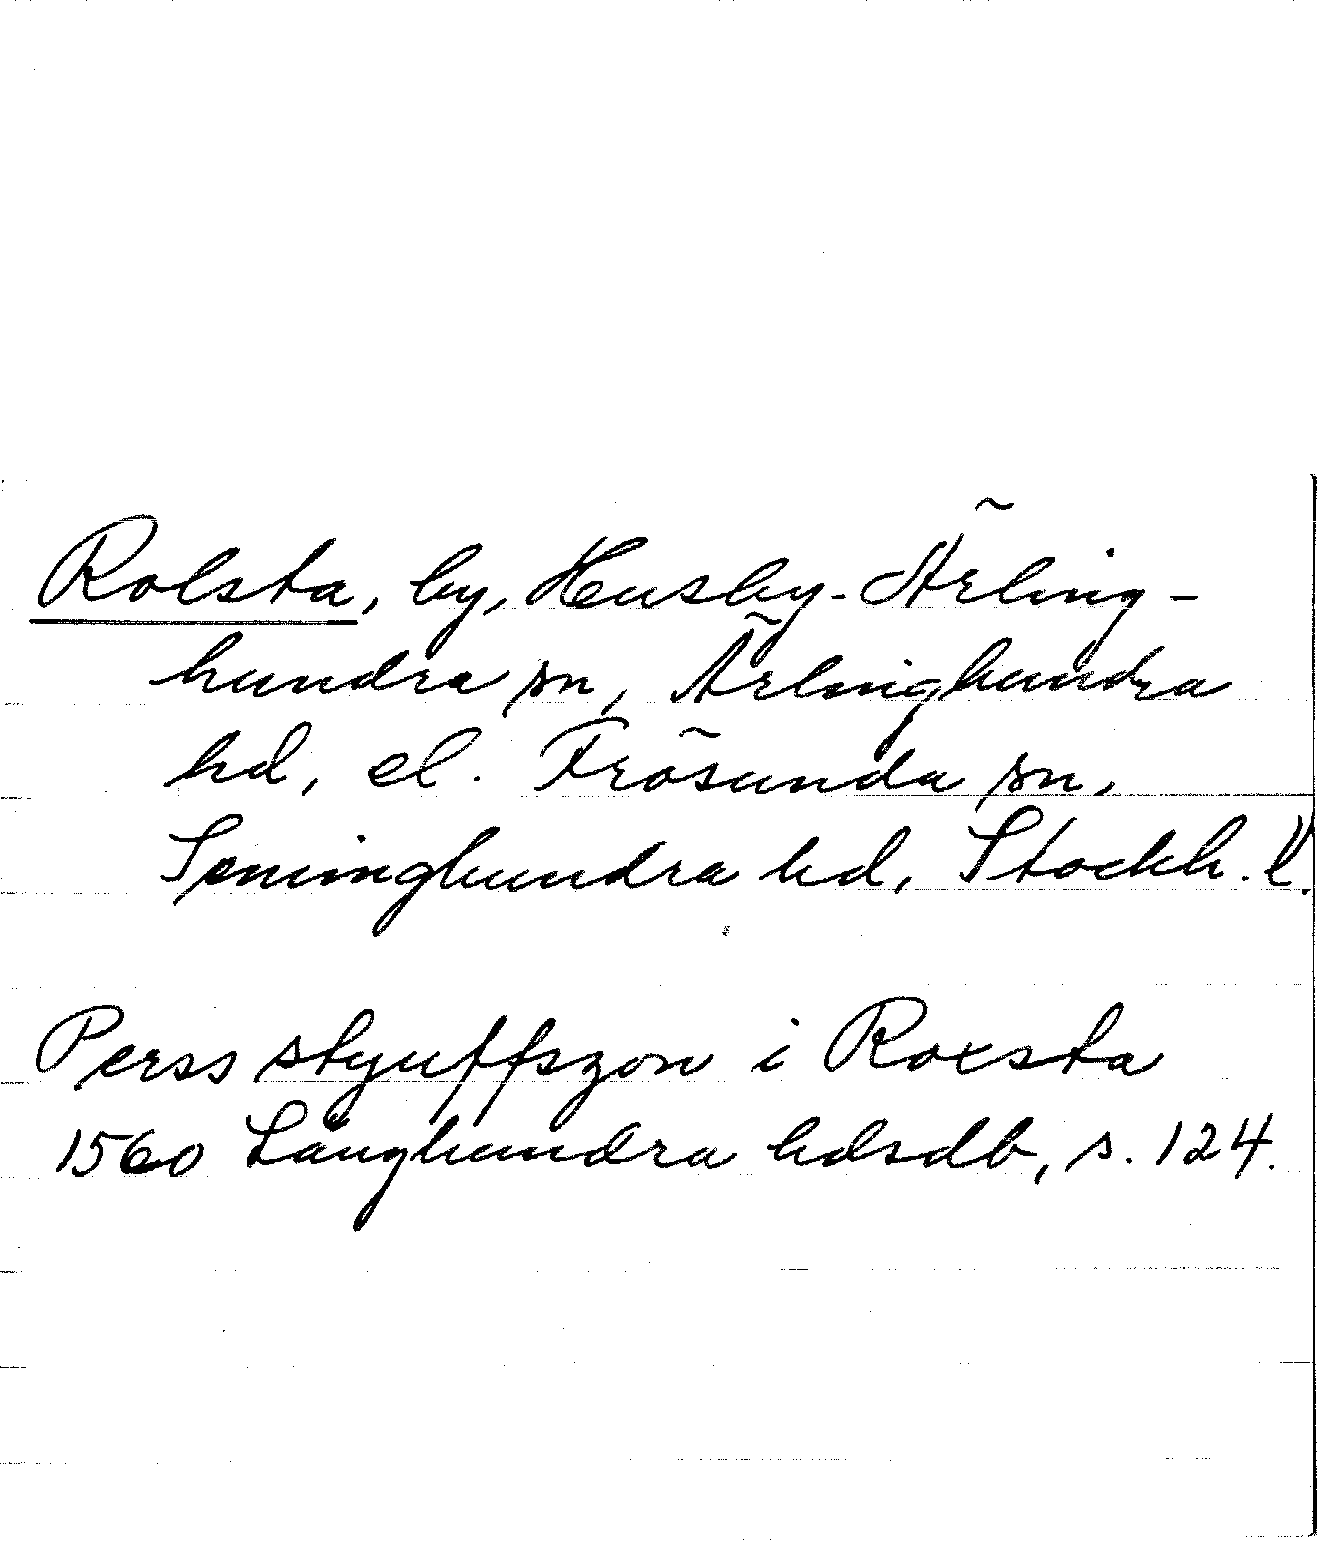 Rolsta, by, Husby-Ärling-
hundra sn, Ärlinghundra
hd, el. Frösunda sn,
Seminghundra hd, Stockh. l.
Perss styuffszon i Roxsta
1560 Långhundra hdsdb, s. 124.